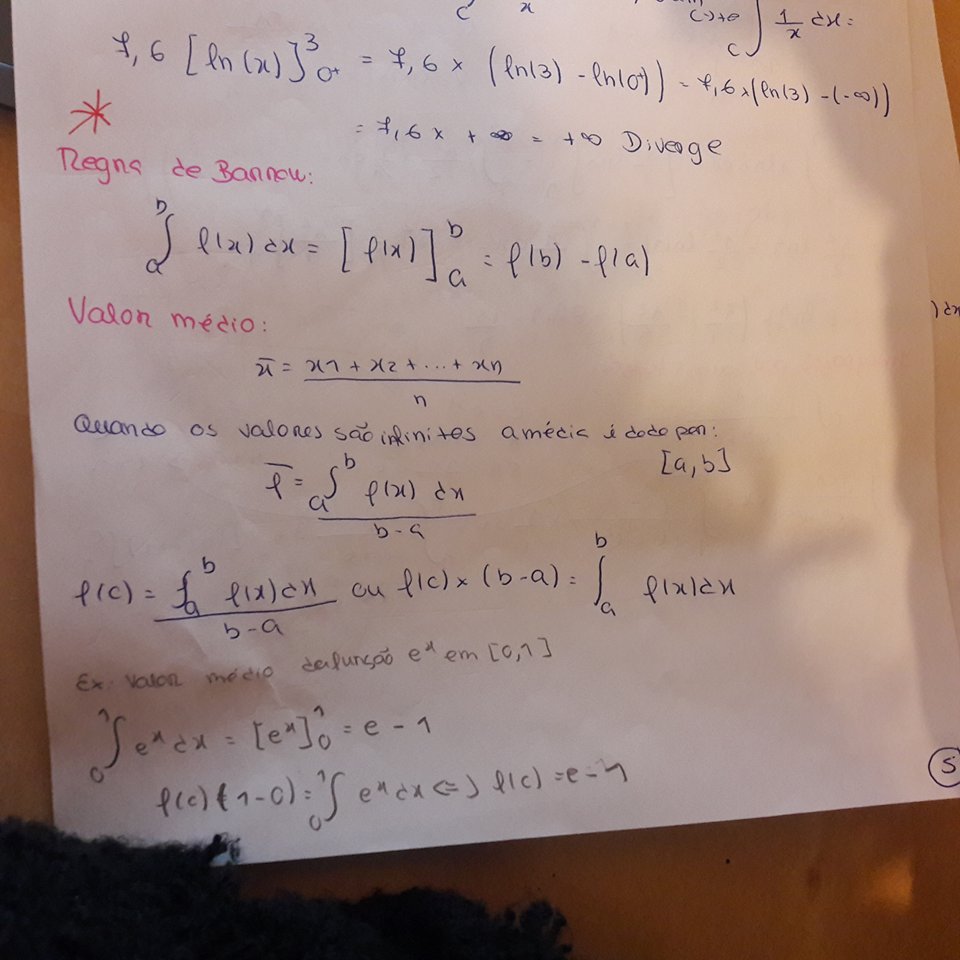 c x c→+∞ ∫ 1/x dx =
c
7,6 [ln(x)]³₀₊ = 7,6 × (ln(3) - ln(0⁺)) = 7,6 × (ln(3) - (-∞))
= 7,6 × +∞ = +∞ Diverge
Regra de Barrow:
∫ₐᵇ f(x) dx = [f(x)]ₐᵇ = f(b) - f(a)
Valor médio:
x̄ = x1 + x2 + ... + xn / n
Quando os valores são infinitos a média é dado por:
f̄ = ∫ₐᵇ f(x) dx / b-a [a,b]
f(c) = ∫ₐᵇ f(x) dx / b-a ou f(c) × (b-a) = ∫ₐᵇ f(x) dx
Ex: Valor médio da função eˣ em [0,1]
∫₀¹ eˣ dx = [eˣ]₀¹ = e - 1
f(c) (1-0) = ∫₀¹ eˣ dx <=> f(c) = e-1
) dx
5